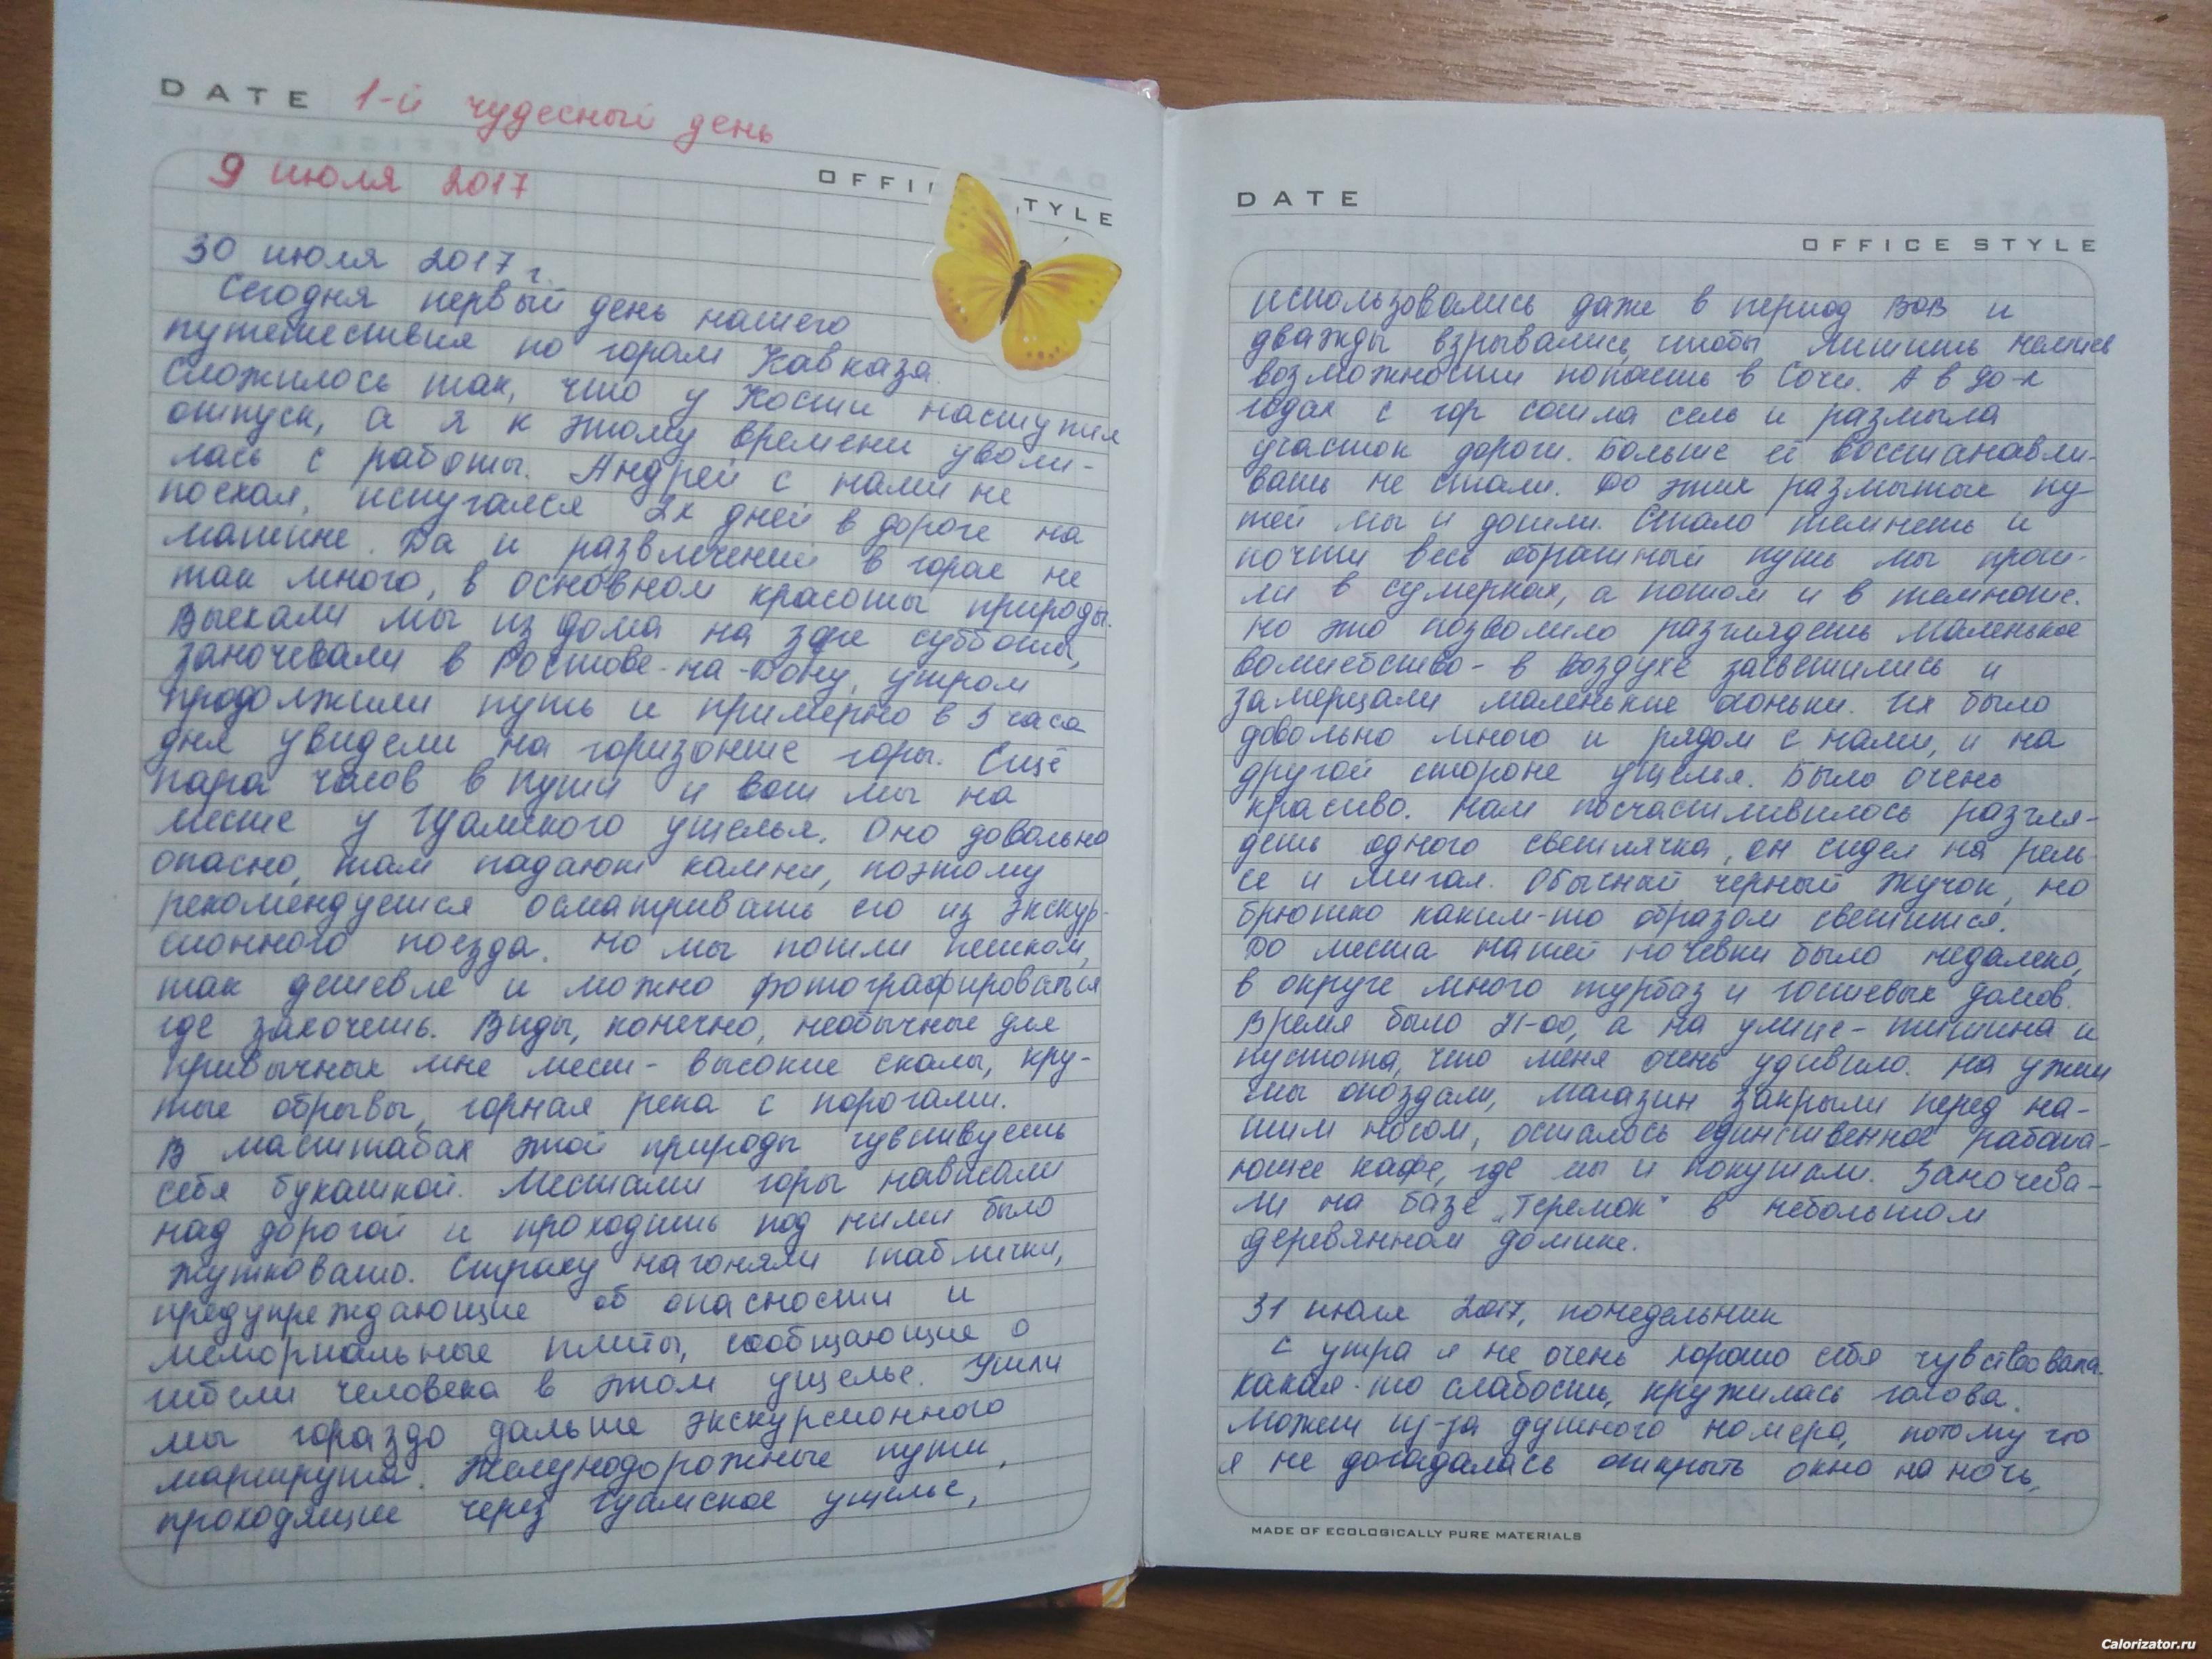 DATE 1-й чудесный день
OFFICE STYLE
9 июля 2017
30 июля 2017 г.
Сегодня первый день нашего
путешествия по горам Кавказа.
Сложилось так, что у Кости наступил
отпуск, а я к этому времени уволи-
лась с работы. Андрей с нами не
поехал, испугался 2х дней в дороге на
машине. Да и развлечений в горах не
так много, в основном красоты природы.
Выехали мы из дома на заре субботы,
заночевали в Ростове-на-Дону, утром
продолжили путь и примерно в 3 часа
дня увидели на горизонте горы. Ещё
пара часов в пути и вот мы на
месте у Гуамского ущелья. Оно довольно
опасно, там падают камни, поэтому
рекомендуется осматривать его из экскур-
сионного поезда. Но мы пошли пешком,
так дешевле и можно фотографироваться
где захочешь. Виды, конечно, необычные для
привычных мне мест - высокие скалы, кру-
тые обрывы, горная река с порогами.
В масштабах этой природы чувствуешь
себя букашкой. Местами горы нависали
над дорогой и проходить под ними было
жутковато. Страху нагоняли таблички,
предупреждающие об опасности и
мемориальные плиты, сообщающие о
гибели человека в этом ущелье. Ушли
мы гораздо дальше экскурсионного
маршрута. Железнодорожные пути,
проходящие через Гуамское ущелье,
DATE
OFFICE STYLE
использовались даже в период ВОВ и
дважды взрывались, чтобы лишить немцев
возможности попасть в Сочи. А в 90-х
годах с гор сошла сель и размыла
участок дороги. Больше её восстанавли-
вать не стали. До этих размытых пу-
тей мы и дошли. Стало темнеть и
почти весь обратный путь мы прош-
ли в сумерках, а потом и в темноте.
Но это позволило разглядеть маленькое
волшебство - в воздухе засветились и
замерцали маленькие огоньки. Их было
довольно много и рядом с нами, и на
другой стороне ущелья. Было очень
красиво. Нам посчастливилось разгля-
деть одного светлячка, он сидел на рель-
се и мигал. Обычный черный жучок, но
брюшко каким-то образом светится.
До места нашей ночевки было недалеко,
в округе много турбаз и гостевых домов.
Время было 21-00, а на улице - тишина и
пустота, что меня очень удивило. На ужин
мы опоздали, магазин закрыли перед на-
шим носом, осталось единственное работа-
ющее кафе, где мы и покушали. Заночева-
ли на базе „Теремок" в небольшом
деревянном домике.
31 июля 2017, понедельник
С утра я не очень хорошо себя чувствовала.
Какая-то слабость, кружилась голова.
Может из-за душного номера, потому что
я не догадалась открыть окно на ночь,
MADE OF ECOLOGICALLY PURE MATERIALS
Calorizator.ru